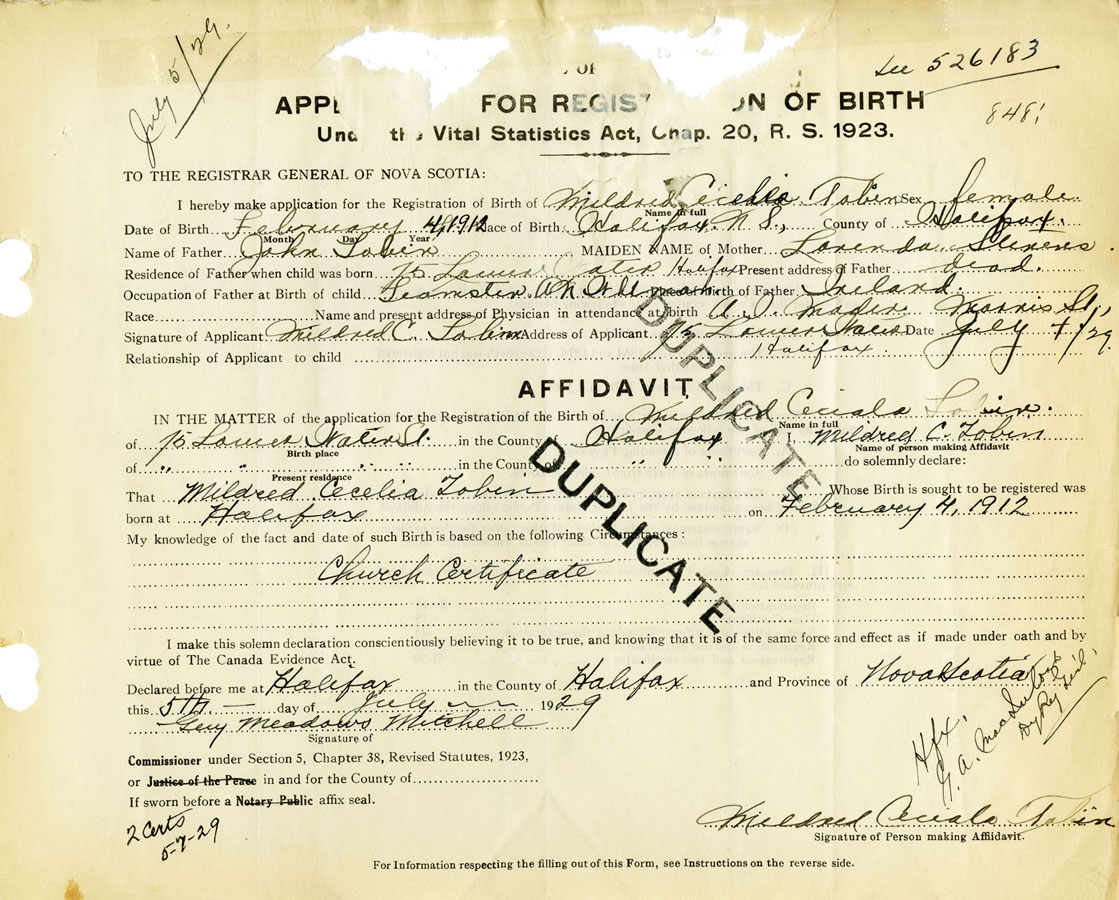 July 5/29.
OF
See 526183
APPL FOR REGIST ON OF BIRTH
848
Und the Vital Statistics Act, Chap. 20, R. S. 1923.
TO THE REGISTRAR GENERAL OF NOVA SCOTIA:
I hereby make application for the Registration of Birth of Mildred Cecelia Tobin Sex female
Name in full
Date of Birth February 4, 1912 Place of Birth Halifax N.S., County of Halifax.
Month Day Year
Name of Father John Tobin MAIDEN NAME of Mother Lorenda Stevens
Residence of Father when child was born 75 Lower Water Halifax Present address of Father dead.
Occupation of Father at Birth of child Teamster. of Birth of Father Ireland.
Race Name and present address of Physician in attendance at birth A. I. Mader. Morris St,
Signature of Applicant Mildred C. Tobin Address of Applicant 75 Lower Water Date July 4/29
Halifax.
Relationship of Applicant to child
AFFIDAVIT
IN THE MATTER of the application for the Registration of the Birth of Mildred Cecala Tobin.
Name in full
of 75 Lower Water St. in the County of Halifax I, Mildred C. Tobin
Birth place Name of person making Affidavit
of " " " " in the County of " " do solemnly declare:
Present residence
That Mildred Cecelia Tobin Whose Birth is sought to be registered was
born at Halifax on February 4, 1912
My knowledge of the fact and date of such Birth is based on the following Circumstances:
Church Certificate
DUPLICATE
DUPLICATE
I make this solemn declaration conscientiously believing it to be true, and knowing that it is of the same force and effect as if made under oath and by
virtue of The Canada Evidence Act.
Declared before me at Halifax in the County of Halifax and Province of Nova Scotia
this 5th day of July 1929
Guy Meadows Mitchell
Signature of
Commissioner under Section 5, Chapter 38, Revised Statutes, 1923,
or Justice of the Peace in and for the County of
If sworn before a Notary Public affix seal.
2 Certs
5-7-29
Hfx.
G. A.
Dy Reg
Mildred Cecala Tobin
Signature of Person making Affidavit.
For Information respecting the filling out of this Form, see Instructions on the reverse side.